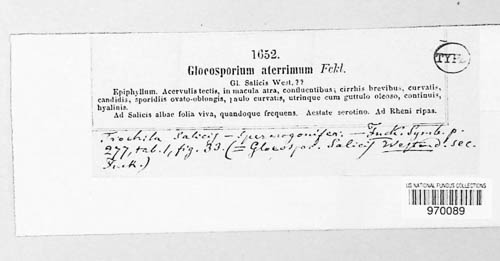 1652.
TYPE
Gloeosporium aterrimum Fckl.
Gl. Salicis West.??
Epiphyllum. Acervulis tectis, in macula atra, confluentibus; cirrhis brevibus, curvatis,
candidis, sporidiis ovato-oblongis, paulo curvatis, utrinque cum guttulo oleoso, continuis,
hyalinis.
Ad Salicis albae folia viva, quandoque frequens. Aestate serotino. Ad Rheni ripas.
Trochila Salicis — Spermogonifer. — Fuck. Symb. p.
277, tab. 1, fig. 33. (= Gloeospor. Salicis Westend. sec.
Fuck.)
US NATIONAL FUNGUS COLLECTIONS
970089